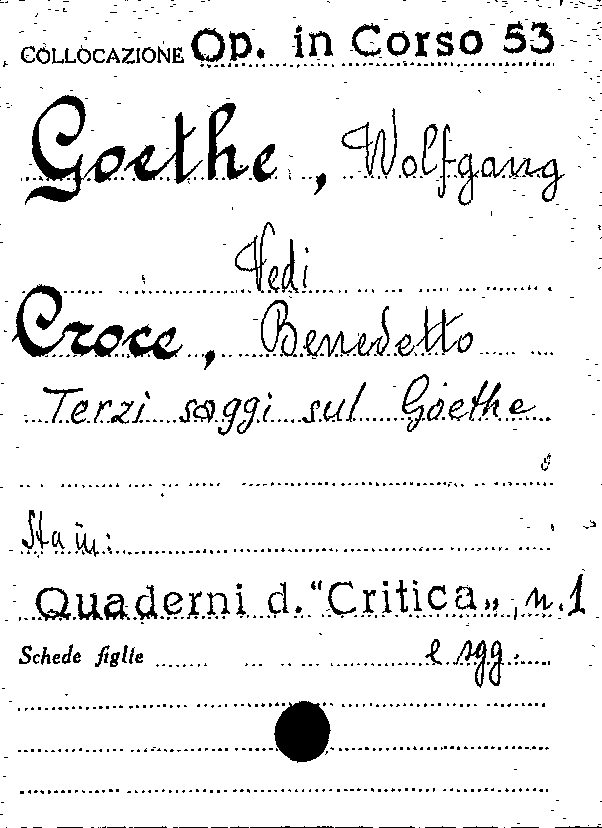 COLLOCAZIONE Op. in Corso 53
Goethe, Wolfgang
Vedi
Croce, Benedetto
Terzi saggi sul Goethe
Sta in:
Quaderni d. "Critica„, n. 1
Schede figlie e sgg.